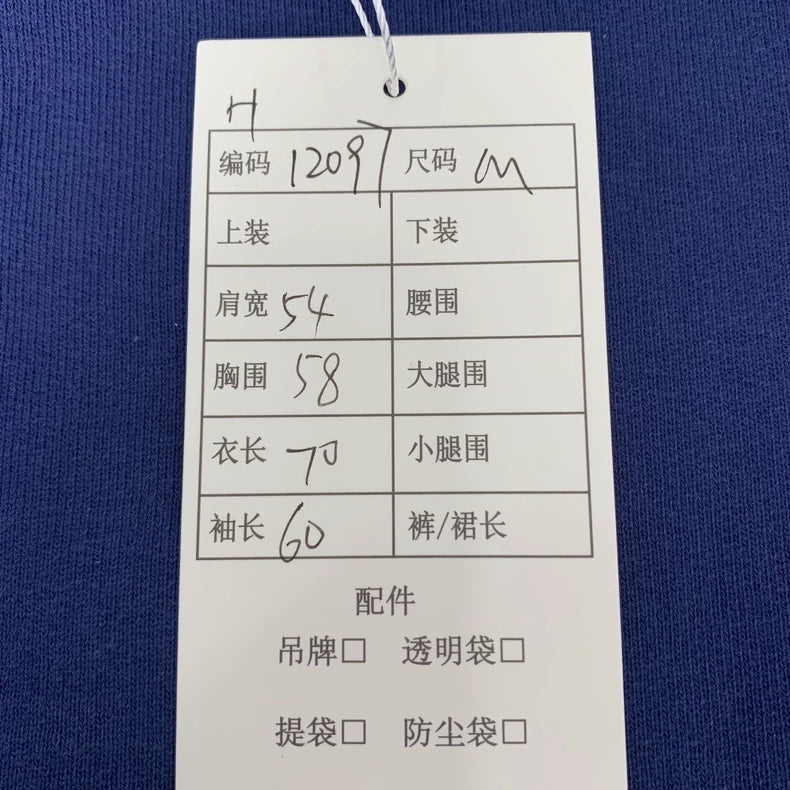 H
编码 12097 尺码 M
上装 下装
肩宽 54 腰围
胸围 58 大腿围
衣长 70 小腿围
袖长 60 裤/裙长
配件
吊牌□ 透明袋□
提袋□ 防尘袋□